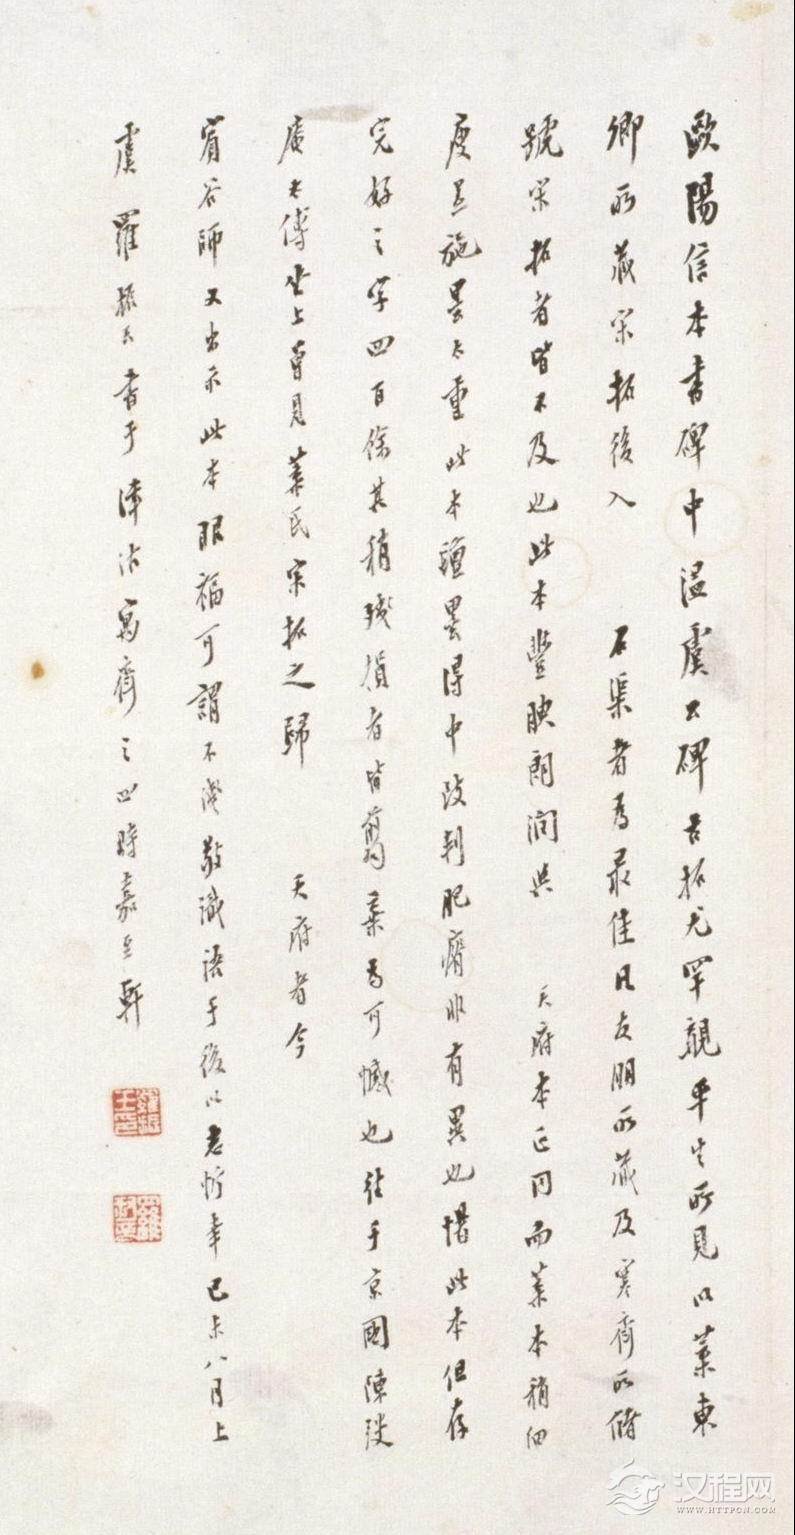 歐陽信本書碑中溫虞公碑古拓尤罕覯平生所見以葉東
卿所藏宋拓後入 石渠者為最佳凡友朋所藏及寒齋所儲
號宋拓者皆不及也此本豐腴朗潤與 天府本正同而葉本稍細
瘦並施墨太重此本氈墨得中故判肥瘠非有異也惜此本但存
完好之字四百餘其稍殘損者皆翦棄為可憾也往于京國陳弢
庵太傅坐上曾見葉氏宋拓之歸 天府者今
宥谷師又出示此本眼福可謂不淺敬識語于後以志忻幸己未八月上
虞羅振玉書于津沽寓齋之四時嘉至軒